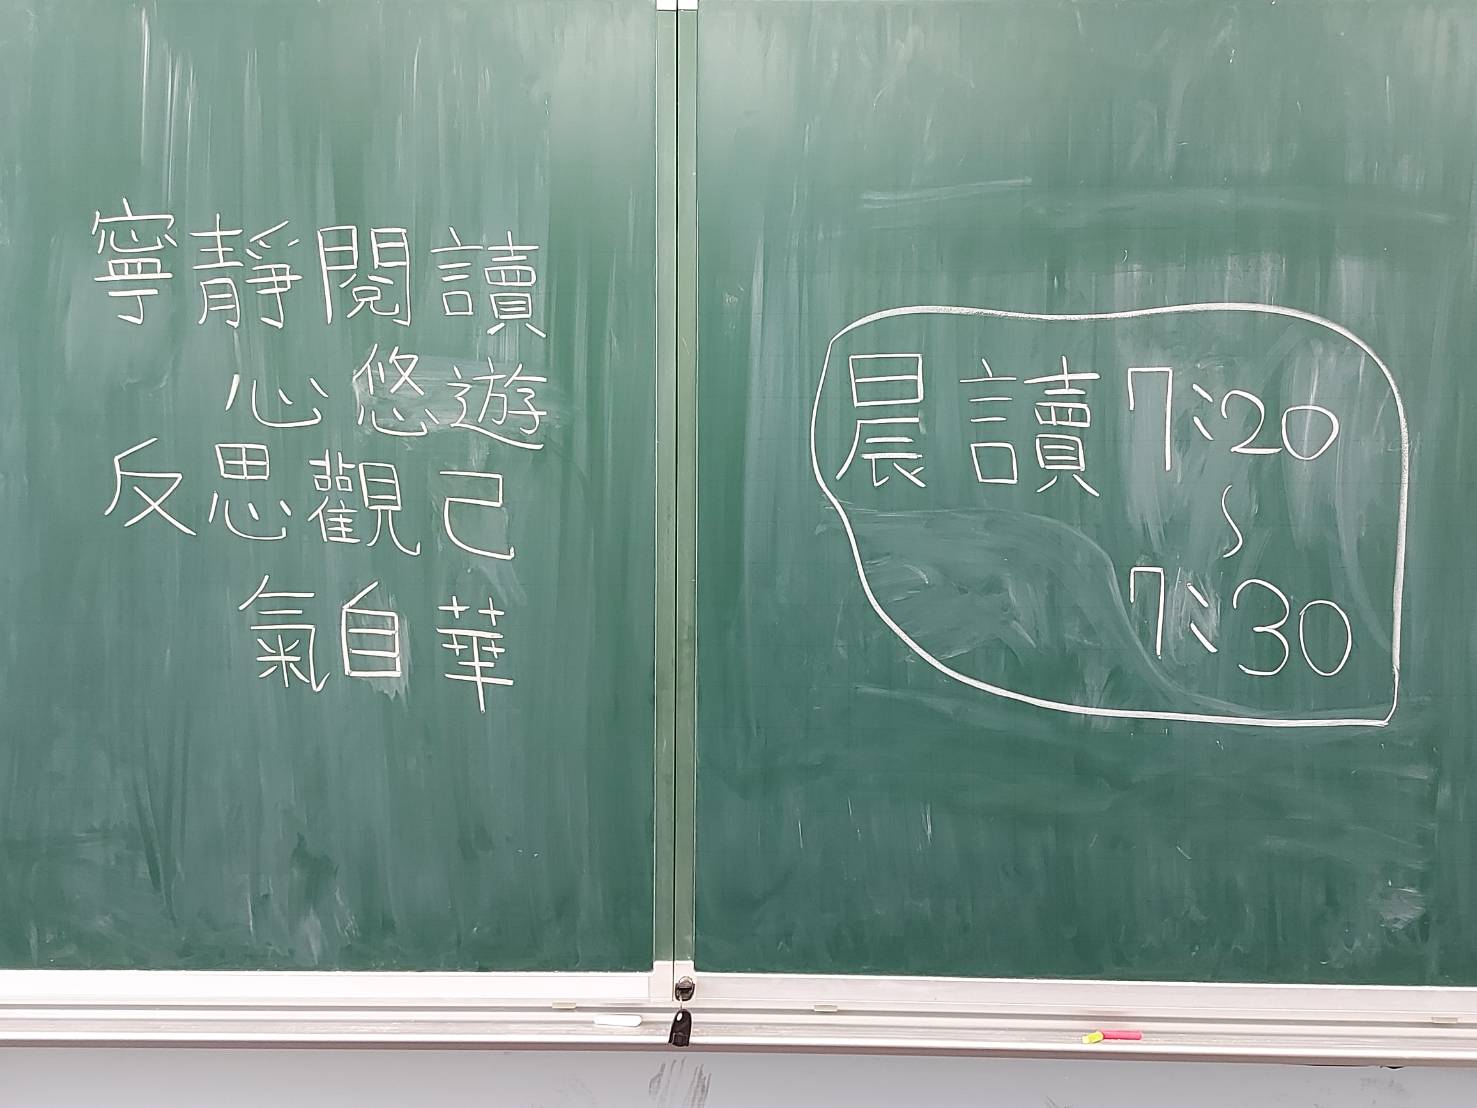 寧靜閱讀
心悠遊
反思觀己
氣自華
晨讀7:20
~
7:30